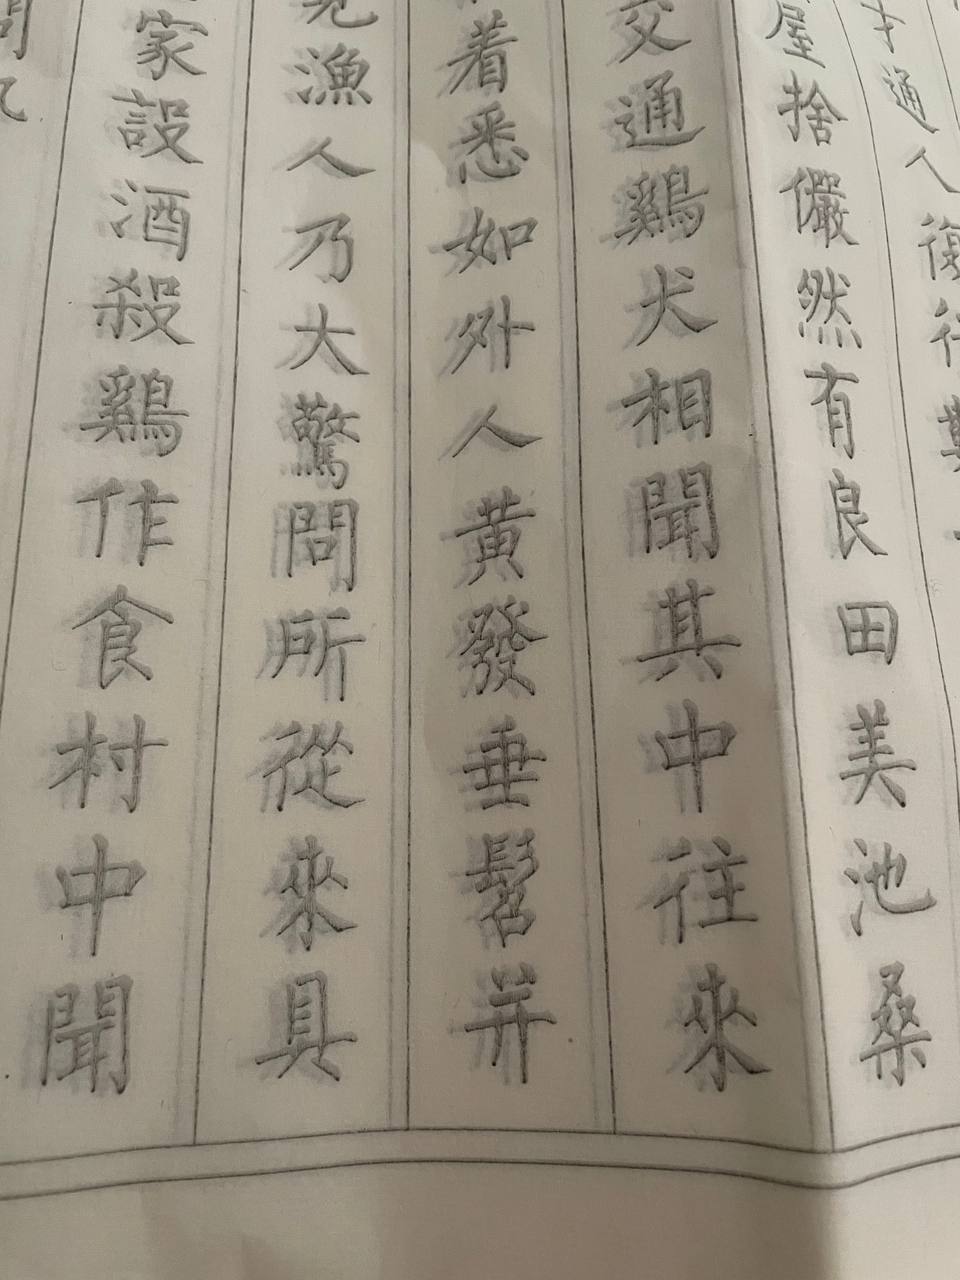 才通人復行數
屋舍儼然有良田美池桑
交通鷄犬相聞其中往來
着悉如外人黃髮垂髫並
見漁人乃大驚問所從來具
家設酒殺鷄作食村中聞